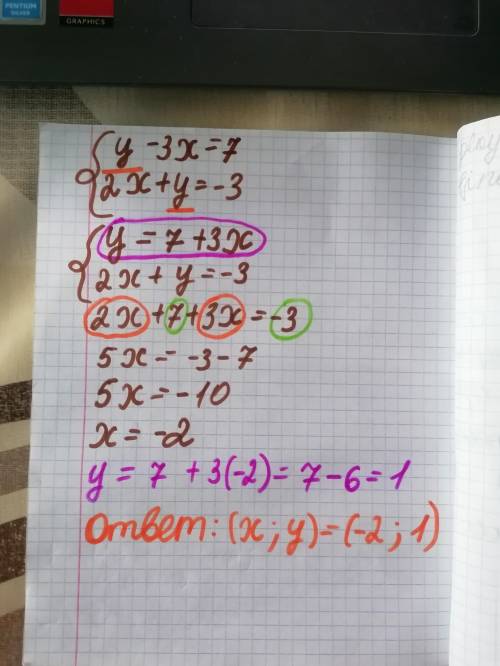 PENTIUM
SILVER
GRAPHICS
y - 3x = 7
2x + y = -3
y = 7 + 3x
2x + y = -3
2x + 7 + 3x = -3
5x = -3 - 7
5x = -10
x = -2
y = 7 + 3(-2) = 7 - 6 = 1
Ответ: (x; y) = (-2; 1)